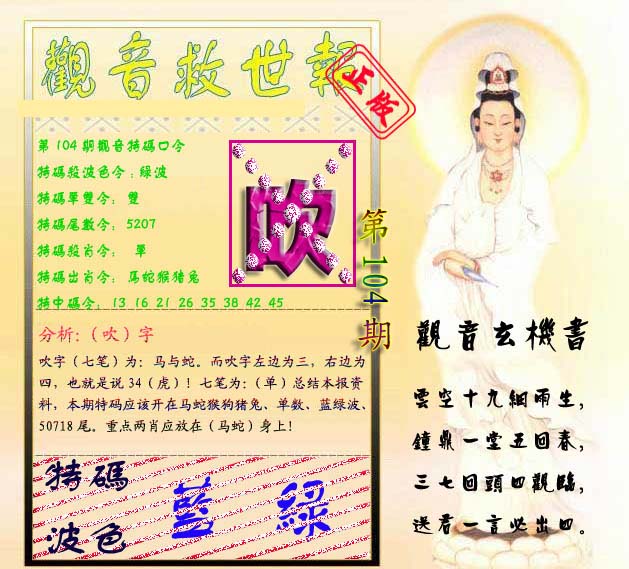 觀音救世報
正版
第104期觀音特碼口令
特碼殺波色令:綠波
特碼單雙令: 雙
特碼尾數令: 5207
特碼殺肖令: 單
特碼出肖令: 馬蛇猴豬兔
特中碼令: 13 16 21 26 35 38 42 45
吹
第104期
分析:（吹）字
吹字（七笔）为：马与蛇。而吹字左边为三，右边为
四，也就是说 34（虎）！七笔为：（单）总结本报资
料，本期特码应该开在马蛇猴狗猪兔、单数、蓝绿波、
50718 尾。重点两肖应放在（马蛇）身上！
特碼
波色
藍 綠
觀音玄機書
雲空十九細雨生，
鐘鼎一堂五回春，
三七回頭四觀臨，
送君一言必出四。